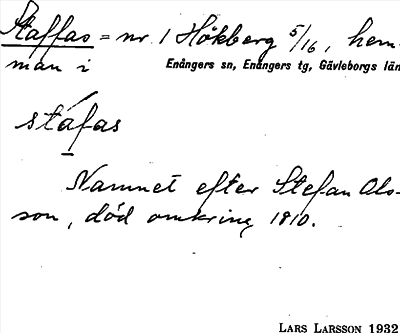 Staffas = nr 1 Hökberg 5/16, hem-
man i Enångers sn, Enångers tg, Gävleborgs län
stáfas
Namnet efter Stefan Ols-
son, död omkring 1810.
LARS LARSSON 1932